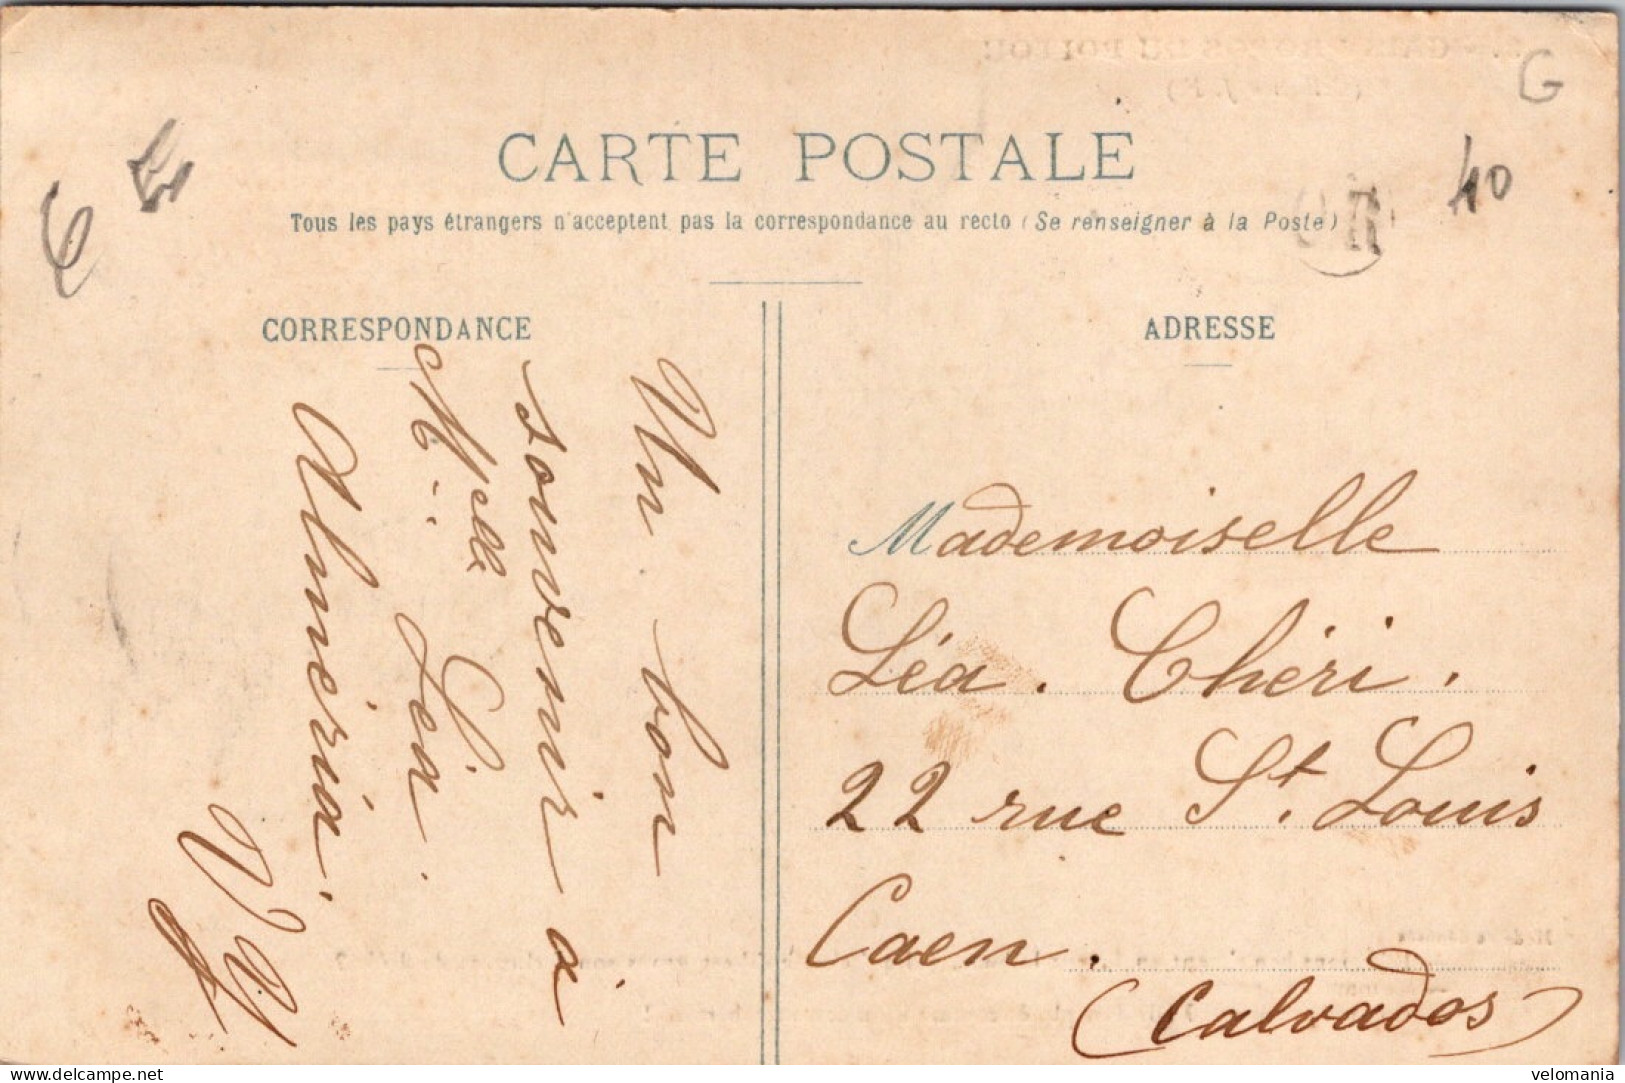 CARTE POSTALE
Tous les pays étrangers n'acceptent pas la correspondance au recto (Se renseigner à la Poste)
CORRESPONDANCE
Un bon
souvenir à
Melle Léa.
Alméria.
ADRESSE
Mademoiselle
Léa. Chéri.
22 rue St. Louis
Caen.
(Calvados)
G
10
velomania